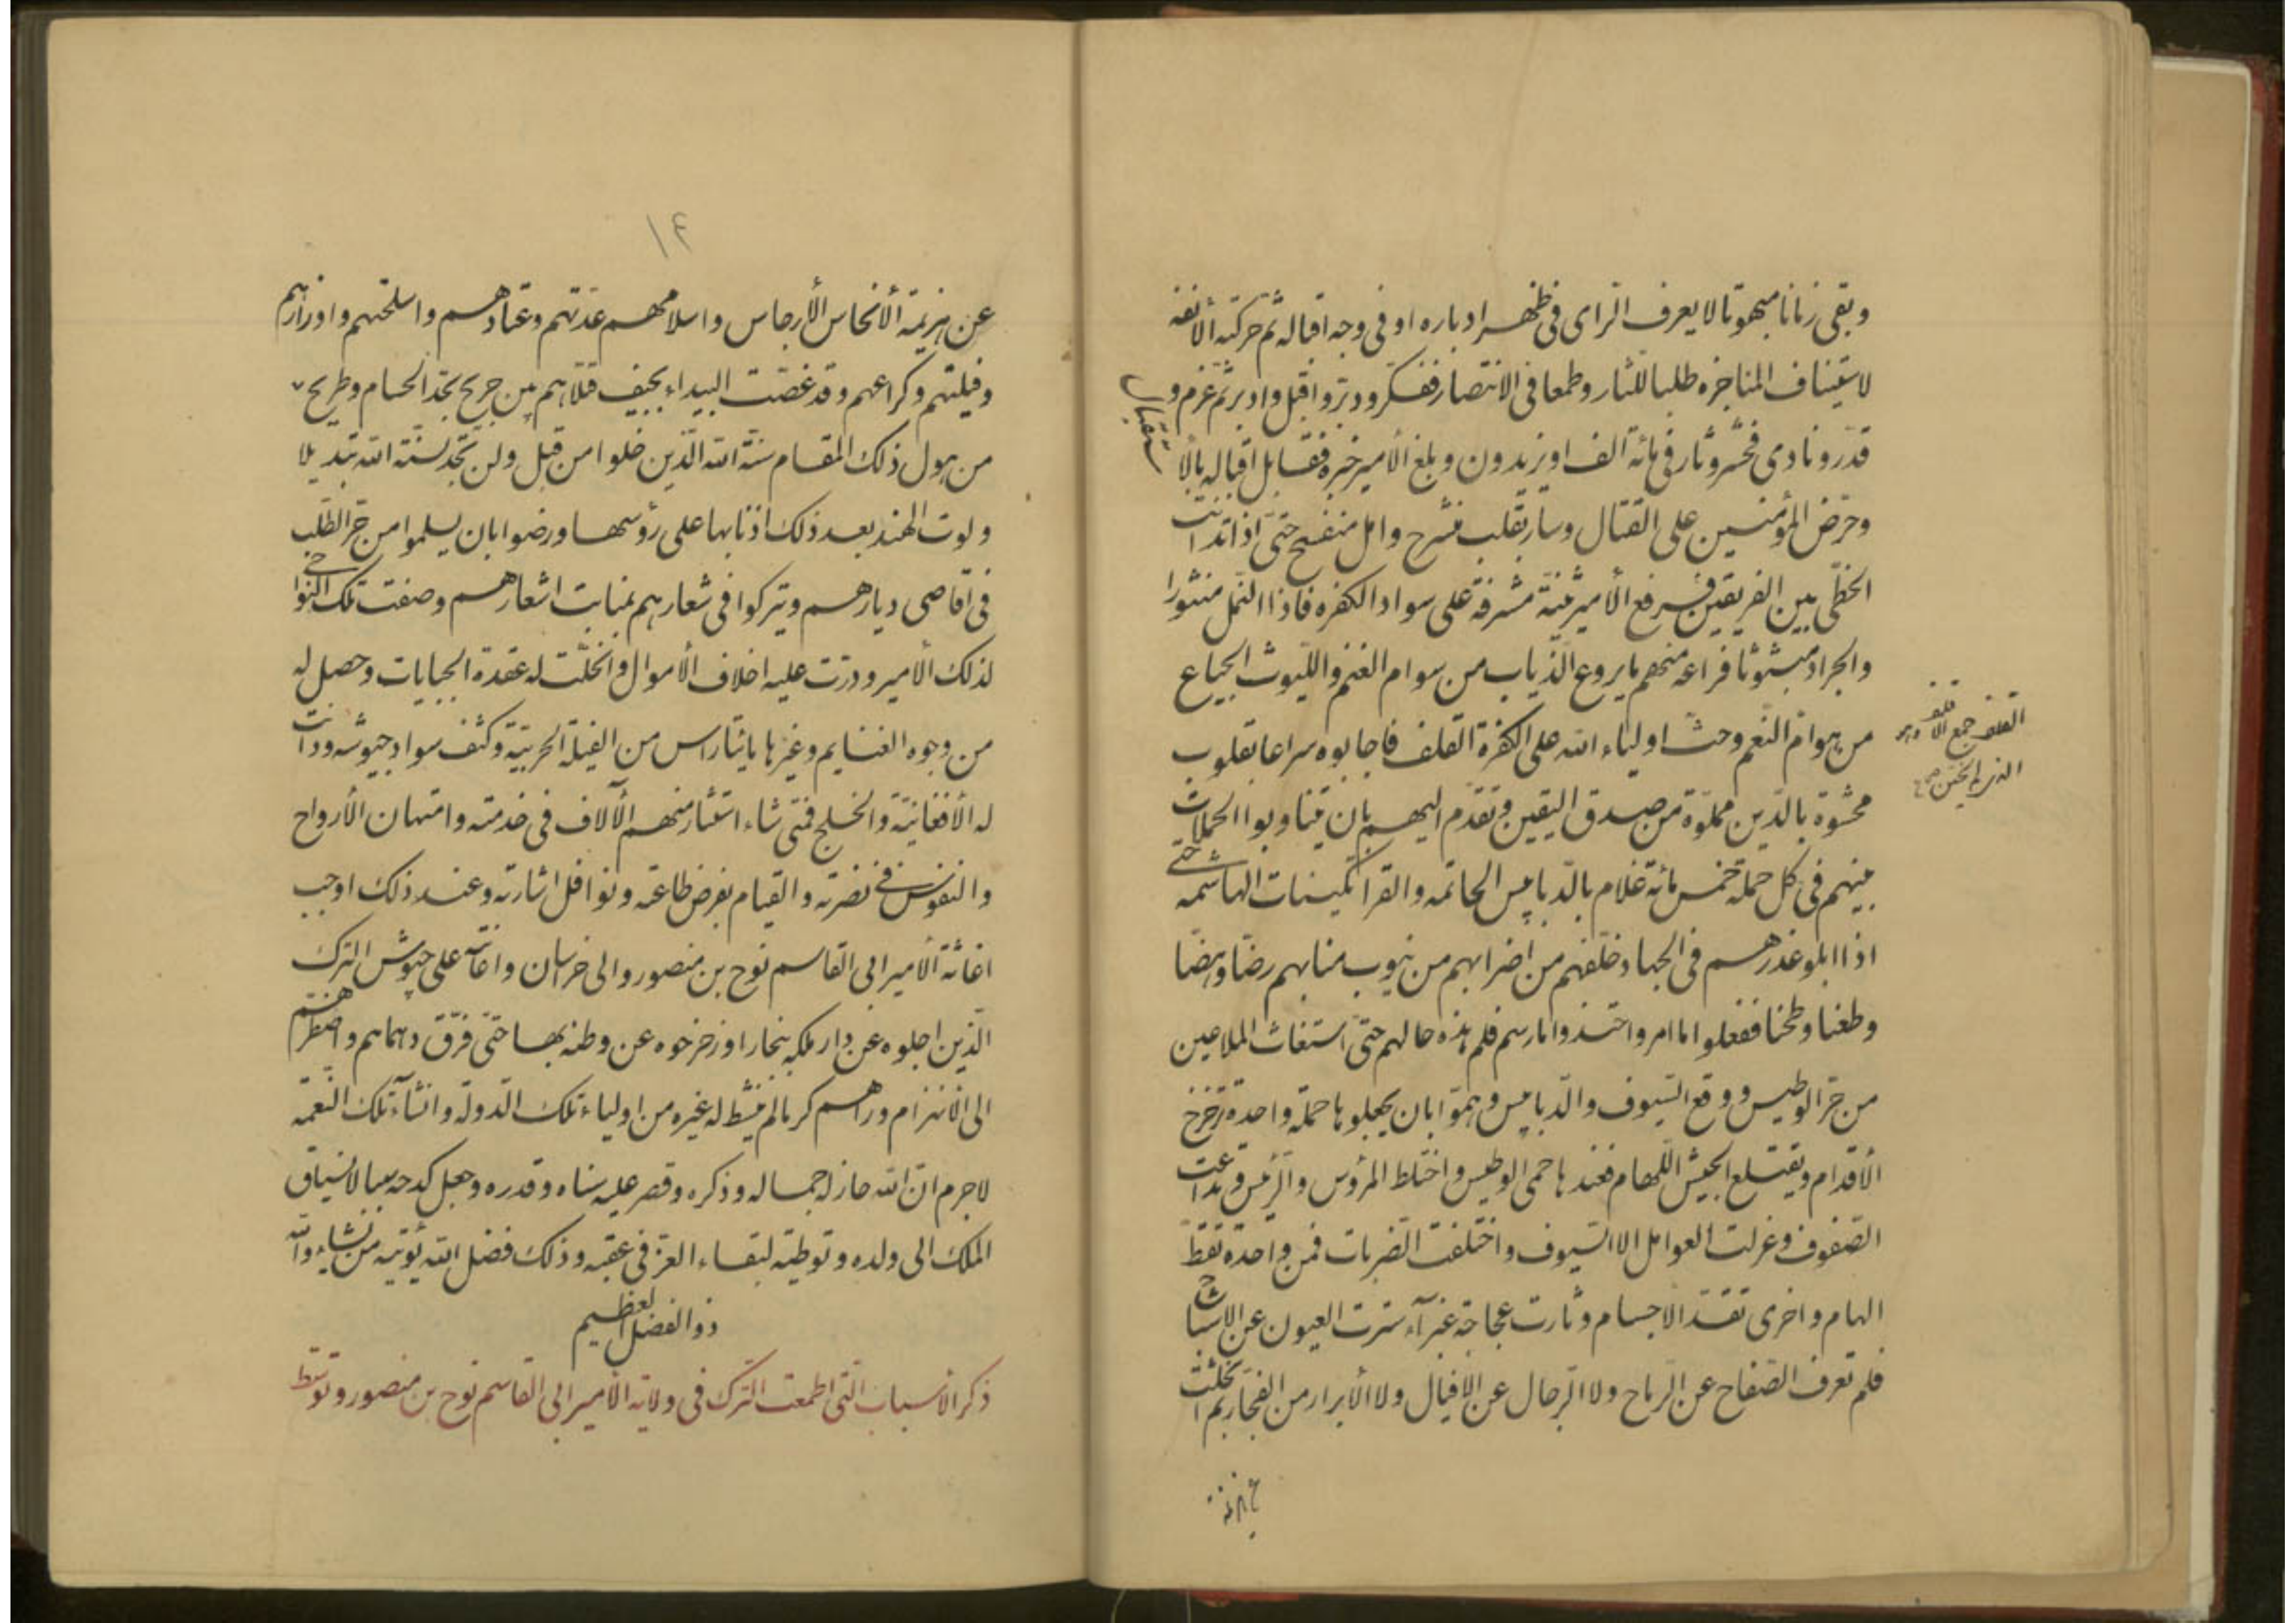 وبقى زمانا مبهوتا لا يعرف الراى فى ظهر ادباره او فى وجه اقباله ثم حركته الأنفة
لاستيناف المناجزه طلبا للثار وطمعا فى الانتصار ففكر ودبر واقبل وادبر ثم عزم و
قدر ونادى فحشر وثار فى مائة الف او يزيدون وبلغ الأمير خبره فقابل اقباله بالأ
ستقبال
وحرض المؤمنين على القتال وسار بقلب منشرح وامل منفسح حتى اذا تدانت
الخطى بين الفريقين فرع الأمير ثنية مشرفة على سواد الكفره فاذا النمل منثورا
والجراد مبثوثا فراعه منهم ما يروع الذياب من سوام الغنم والليوث الجياع
من هوام النعم وحث اولياء الله على الكفرة القلف فاجابوه سراعا بقلوب
القلف جمع الاقلف وهو
الذى لم يختن
محشوة بالدين مملوة من صدق اليقين وتقدم اليهم بان يتناوبوا الحملات
بينهم فى كل حملة خمس مائة غلام بالدبابيس الحاتمه والقراتكينيات الهاشمه حتى
اذا ابلو عذرهم فى الجهاد خلفهم من اضرابهم من ينوب منابهم رضا وهضا
وطعنا وطحنا ففعلوا ما امر واحتذوا ما رسم فلم هذه حالهم حتى استغاث الملاعين
من حر الوطيس ووقع السيوف والدبابيس وهموا بان يجعلوها حملة واحدة تزحزح
الأقدام ويقتلع الجيش اللهام فعندها حمى الوطيس واختلط المرؤس والرئيس وتداعت
الصفوف وعزلت العوامل الا السيوف واختلفت الضربات فمن واحدة تقط
الهام واخرى تقد الاجسام وثارت عجاجة غبرآء سترت العيون عن الاشباح
فلم تعرف الصفاح عن الرماح ولا الرجال عن الافيال ولا الأبرار من الفجار ثم انجلت
عن هزيمة
١٤
عن هزيمة الأنجاس الأرجاس واسلامهم عدتهم وعتادهم واسلحتهم واوزارهم
وفيلتهم وكراعهم وقد غصت البيداء بجيف قتلاهم بين جريح بحد الحسام وطريح
من هول ذلك المقام سنة الله الذين خلوا من قبل ولن تجد لسنة الله تبديلا
ولوت الهند بعد ذلك اذنابها على رؤسها ورضوا بان يسلموا من حر الطلب
فى اقاصى ديارهم ويتركوا فى شعارهم بمنابت اشعارهم وصفت تلك النواحى
لذلك الأمير ودرت عليه اخلاف الأموال وانحلت له عقدة الجبايات وحصل له
من وجوه الغنايم وغيرها مايتا راس من الفيلة الحربية وكثف سواد جيوشه ودانت
له الأفغانية والخلج فمتى شاء استثار منهم الآلاف فى خدمته وامتهان الأرواح
والنفوس فى نصرته والقيام بفرض طاعته ونوافل اشارته وعند ذلك اوجب
اغاثة الأمير ابى القاسم نوح بن منصور والى خراسان واعانته على جيوش الترك
الذين اجلوه عن دار ملكه بخارا وزحزحوه عن وطنه بها حتى فرق دهماهم واضطرهم
الى الانهزام وراهم كرها لم ينشط له غيره من اولياء تلك الدولة وانشآء تلك النعمه
لا جرم ان الله حاز له جماله وذكره وقصر عليه سناه وقدره وجعل كدحه سببا لانسياق
الملك الى ولده وتوطية لبقاء العز فى عقبه وذلك فضل الله يؤتيه من يشاء والله
ذو الفضل العظيم
ذكر الاسباب التى اطمعت الترك فى ولاية الأمير ابى القاسم نوح بن منصور وتوسط